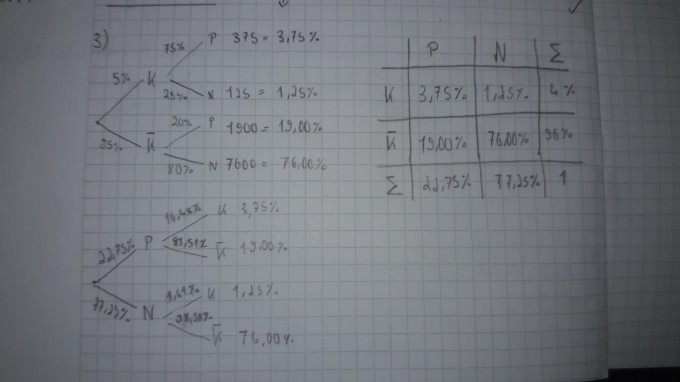 3)
75% P 375 = 3,75%
5% K
25% N 125 = 1,25%
20% P 1900 = 19,00%
95% K̅
80% N 7600 = 76,00%
P N Σ
K 3,75% 1,25% 4%
K̅ 19,00% 76,00% 96%
Σ 22,75% 77,25% 1
16,48% K 3,75%
22,75% P
83,51% K̅ 19,00%
K 1,25%
77,25% N
98,38%
K̅ 76,00%